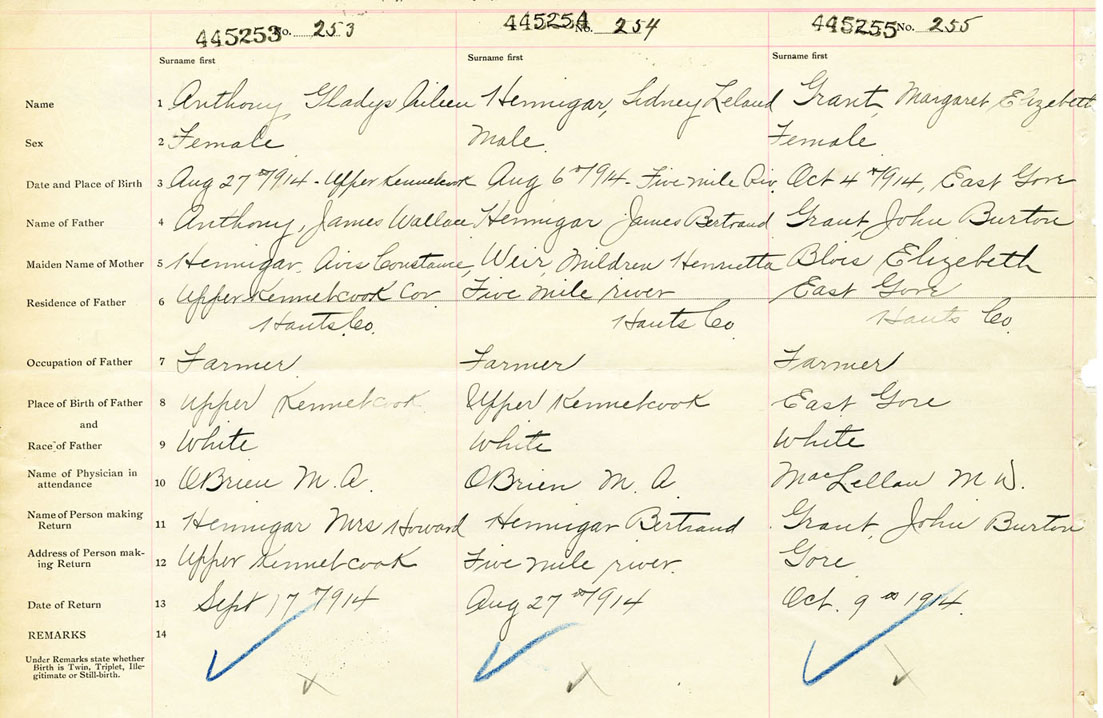 445253 No. 253 445254 No. 254 445255 No. 255
Surname first Surname first Surname first
Name 1 Anthony Gladys Aileen Hennigar, Sidney Leland Grant, Margaret Elizabeth
Sex 2 Female Male Female
Date and Place of Birth 3 Aug 27th 1914 - Upper Kennetcook Aug 6th 1914 - Five mile Riv. Oct 4th 1914, East Gore
Name of Father 4 Anthony, James Wallace Hennigar James Bertrand Grant, John Burton
Maiden Name of Mother 5 Hennigar, Avis Constance Weir, Mildren Henrietta Blois, Elizebeth
Residence of Father 6 Upper Kennetcook Cor Five mile river East Gore
Hants Co. Hants Co Hants Co.
Occupation of Father 7 Farmer Farmer Farmer
Place of Birth of Father 8 Upper Kennetcook Upper Kennetcook East Gore
and
Race of Father 9 White White White
Name of Physician in
attendance 10 OBrien M. A. OBrien M. A MacLellan M W.
Name of Person making
Return 11 Hennigar Mrs Howard Hennigar Bertrand Grant, John Burton
Address of Person mak-
ing Return 12 Upper Kennetcook Five mile river. Gore
Date of Return 13 Sept 17th 1914 Aug 27th 1914 Oct. 9th 1914.
REMARKS 14
Under Remarks state whether
Birth is Twin, Triplet, Ille-
gitimate or Still-birth.